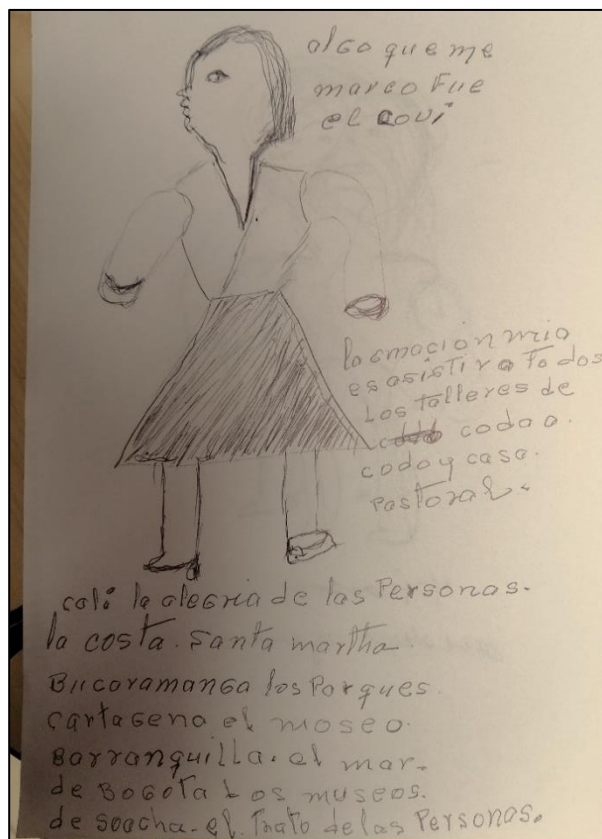 algo que me
marco Fue
el covi
la emoción mia
es asistir a todos
Los talleres de
coda a
codo y casa.
Pastoral.
cali la alegria de las Personas.
la costa. Santa martha
Bucaramanga los Parques.
cartagena el moseo.
Barranquilla. el mar.
de Bogota Los museos.
de soacha. el trato de las Personas.